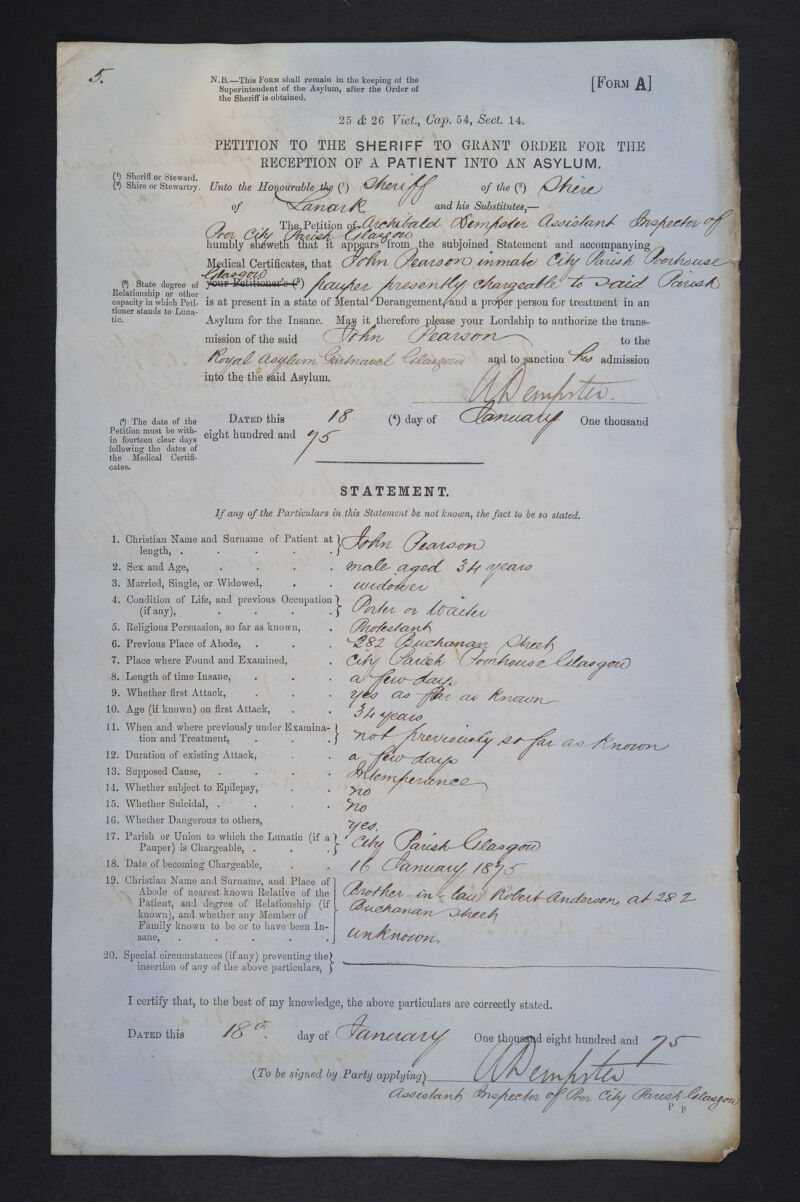 5.
N.B.—This Form shall remain in the keeping of the
Superintendent of the Asylum, after the Order of
the Sheriff is obtained.
[Form A]
25 & 26 Vict., Cap. 54, Sect. 14.
PETITION TO THE SHERIFF TO GRANT ORDER FOR THE
RECEPTION OF A PATIENT INTO AN ASYLUM.
(¹) Sheriff or Steward.
(²) Shire or Stewartry.
Unto the Honourable the (¹) Sheriff of the (²) Shire
of Lanark and his Substitutes,—
The Petition of Archibald Dempster Assistant Inspector of
Poor City Parish Glasgow
humbly sheweth that it appears from the subjoined Statement and accompanying
Medical Certificates, that John Pearson inmate City Parish Poorhouse
Glasgow
(³) State degree of
Relationship or other
capacity in which Peti-
tioner stands to Luna-
tic.
your Petitioner's (³) pauper presently chargeable to said Parish
is at present in a state of Mental Derangement, and a proper person for treatment in an
Asylum for the Insane. May it therefore please your Lordship to authorize the trans-
mission of the said John Pearson to the
Royal Asylum Gartnavel Glasgow and to sanction his admission
into the the said Asylum.
A Dempster.
(⁴) The date of the
Petition must be with-
in fourteen clear days
following the dates of
the Medical Certifi-
cates.
Dated this 18 (⁴) day of January One thousand
eight hundred and 75
STATEMENT.
If any of the Particulars in this Statement be not known, the fact to be so stated.
1. Christian Name and Surname of Patient at
length, . . . . . John Pearson
2. Sex and Age, . . . . male aged 34 years
3. Married, Single, or Widowed, . . widower
4. Condition of Life, and previous Occupation
(if any), . . . . Porter or Waiter
5. Religious Persuasion, so far as known, . Protestant
6. Previous Place of Abode, . . . 282 Buchanan Street
7. Place where Found and Examined, . City Parish Poorhouse Glasgow
8. Length of time Insane, . . . a few days
9. Whether first Attack, . . . yes as far as known
10. Age (if known) on first Attack, . . 34 years
11. When and where previously under Examina-
tion and Treatment, . . . not previously so far as known
12. Duration of existing Attack, . . a few days
13. Supposed Cause, . . . . Intemperence
14. Whether subject to Epilepsy, . . no
15. Whether Suicidal, . . . . no
16. Whether Dangerous to others, . . yes.
17. Parish or Union to which the Lunatic (if a
Pauper) is Chargeable, . . . City Parish Glasgow
18. Date of becoming Chargeable, . . 16 January 1875
19. Christian Name and Surname, and Place of
Abode of nearest known Relative of the
Patient, and degree of Relationship (if
known), and whether any Member of
Family known to be or to have been In-
sane, . . . . .
Brother-in-law Robert Anderson, at 282
Buchanan Street
unknown
20. Special circumstances (if any) preventing the
insertion of any of the above particulars,
I certify that, to the best of my knowledge, the above particulars are correctly stated.
Dated this 18th. day of January One thousand eight hundred and 75
(To be signed by Party applying) A Dempster
Assistant Inspector of Poor City Parish Glasgow
P p